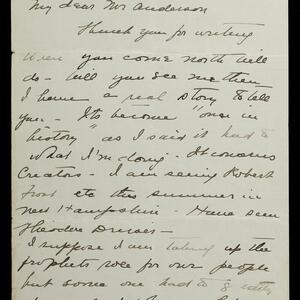 My dear Mr Anderson
Thank you for writing
When you come north will
do - will you see me then
I have a real story to tell
you - Its become "one in
history" as I said it had to
what I'm doing - It concerns
Creators - I am seeing Robert
Frost etc this summer in
New Hampshire - Have seen
Theodore Dreiser -
I suppose I am taking up the
prophets role for our people
but some one had to &